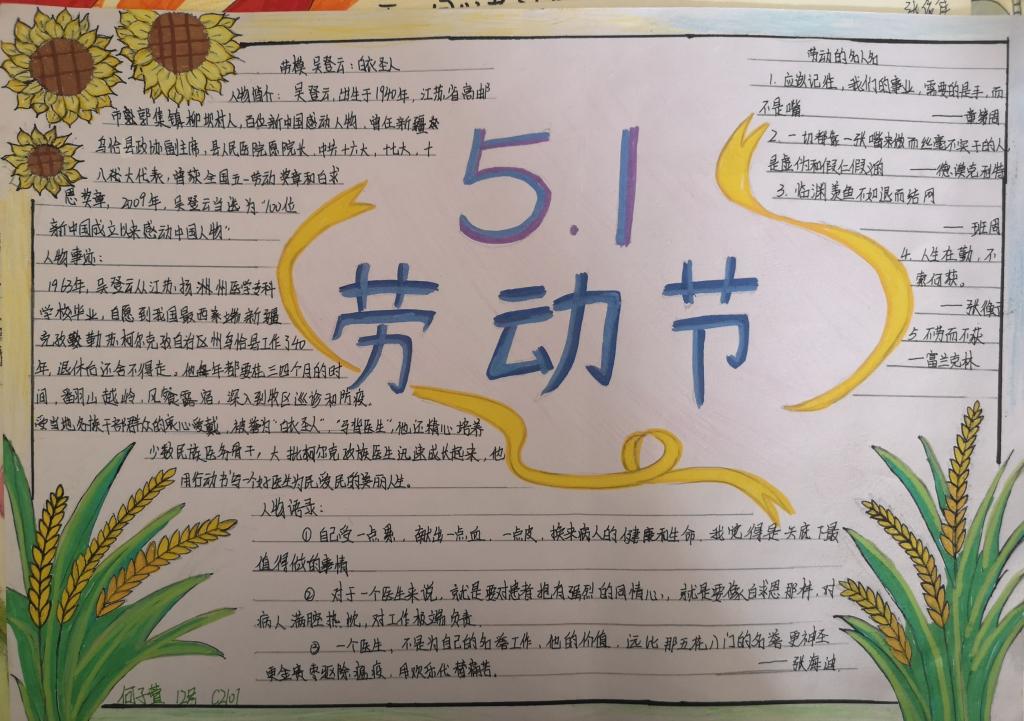 劳模 吴登云：白衣圣人
人物简介：吴登云，出生于1940年，江苏省高邮
市郭集镇柳坝村人，百位新中国感动人物，曾任新疆
乌恰县政协副主席，县人民医院原院长，中共十六大，十七大，十
八大代表，曾获全国五一劳动奖章和白求
恩奖章，2009年，吴登云当选为"100位
新中国成立以来感动中国人物"。
人物事迹：
1963年，吴登云从江苏扬州医学专科
学校毕业，自愿到我国最西来端新疆
克孜勒苏柯尔克孜自治区州乌恰县工作了40
年，退休后还舍不得走，他每年都要在三四个月的时
间，翻山越岭，风餐露宿，深入到牧区巡诊和防疫。
受当地各族干部群众的衷心爱戴，被誉为"白衣圣人"，"马背医生"，他还精心培养
少数民族医务骨干，大批柯尔克孜族医生迅速成长起来，他
用行动书写一个好医生为民爱民的美丽人生。
人物语录：
① 自己受一点累，献出一点血，一点皮，换来病人的健康和生命，我觉得是天底下最
值得做的事情
② 对于一个医生来说，就是要对患者抱有强烈的同情心，就是要像白求恩那样，对
病人满腔热忱，对工作极端负责。
③ 一个医生，不是为自己的名誉工作，他的价值，远比那五花八门的名誉更神圣
更金贵枣驱除瘟疫，用欢乐代替痛苦。 —— 张海迪
5.1
劳动节
劳动的名人名
1. 应该记住，我们的事业，需要的是手，而
不是嘴 —— 童第周
2. 一切都靠一张嘴来做而丝毫不实干的人
是虚伪和假仁假义的 —— 德谟克利特
3. 临渊羡鱼不如退而结网
—— 班固
4. 人生在勤，不
索何获。
—— 张衡
5 不劳而不获
—富兰克林
何子萱 12号 C2101